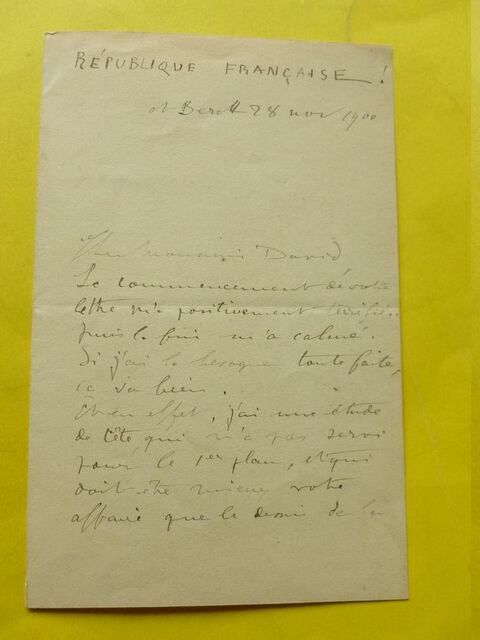 RÉPUBLIQUE FRANÇAISE !
28 nov 1900
Cher Monsieur David
Le commencement de votre
lettre m'a positivement terrifié..
puis la fin m'a calmé.
Si j'ai la besogne toute faite,
ça va bien.
Et en effet, j'ai une étude
de tête qui n'a pas servi
pour le 1er plan, et qui
doit être mieux votre
affaire que le dessin de la